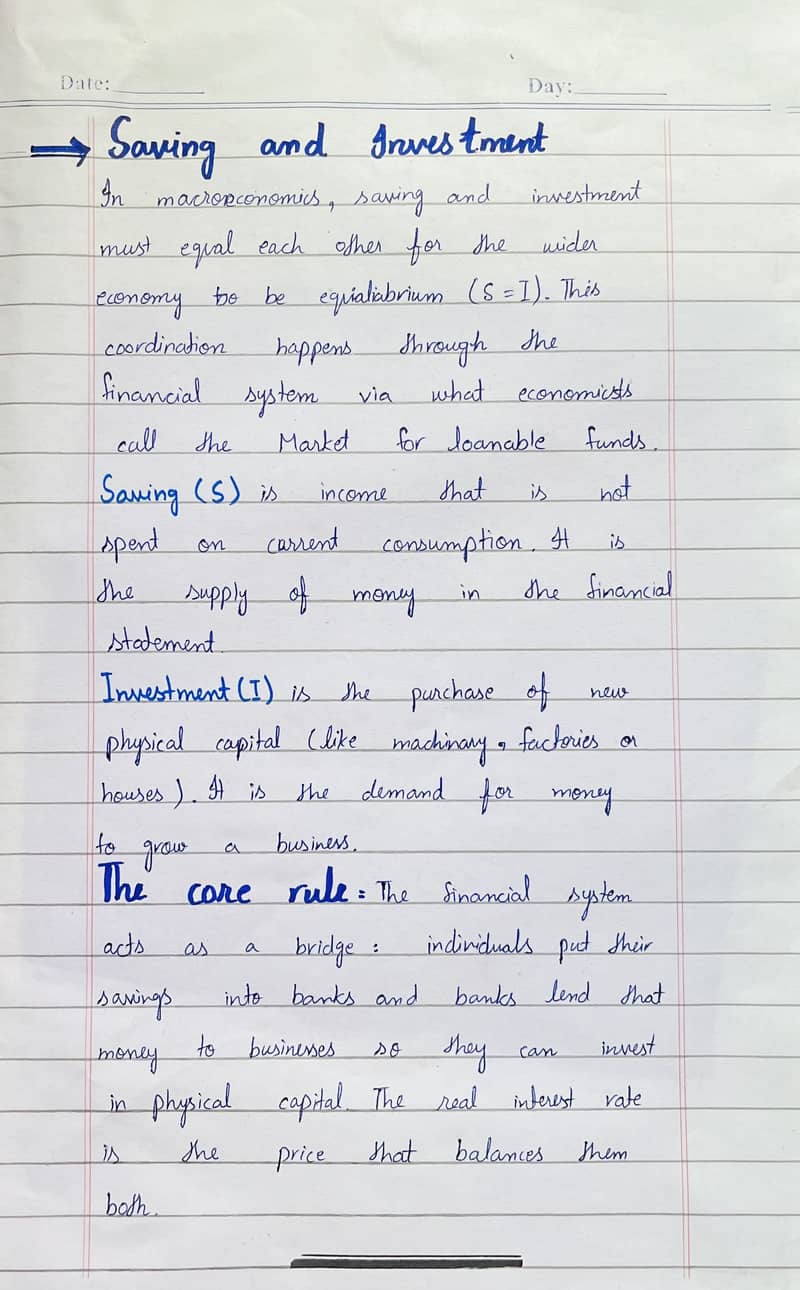 Date:
Day:
→ Saving and Investment
In macroeconomics, saving and investment
must equal each other for the wider
economy to be equialiabrium (S = I). This
coordination happens through the
financial system via what economicsts
call the Market for loanable funds.
Saving (S) is income that is not
spent on current consumption. It is
the supply of money in the financial
statement.
Investment (I) is the purchase of new
physical capital (like machinary, factories or
houses). It is the demand for money
to grow a business.
The core rule : The financial system
acts as a bridge : individuals put their
savings into banks and banks lend that
money to businesses so they can invest
in physical capital. The real interest rate
is the price that balances them
both.